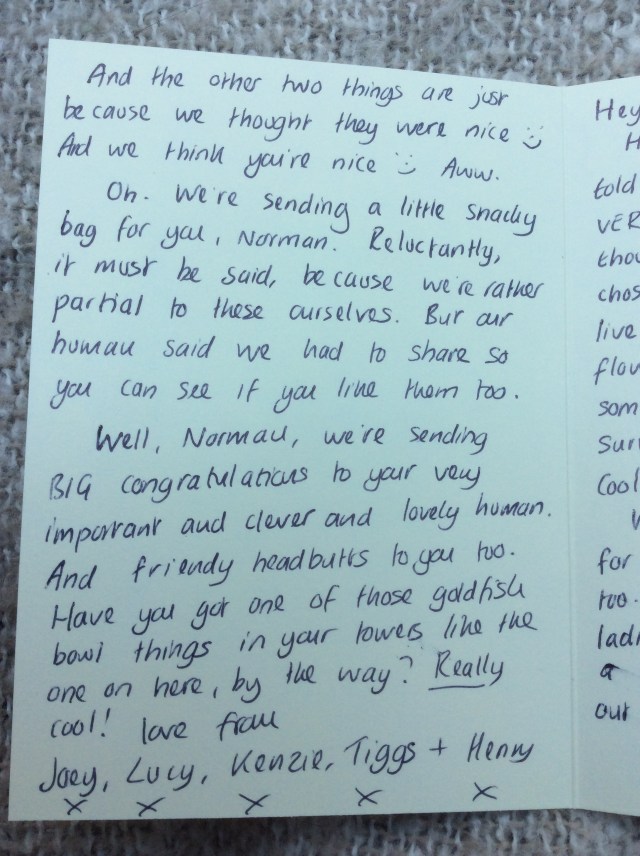 And the other two things are just
because we thought they were nice :)
And we think you're nice :) Aww.
Oh. We're sending a little snacky
bag for you, Norman. Reluctantly,
it must be said, because we're rather
partial to these ourselves. But our
human said we had to share so
you can see if you like them too.
Well, Norman, we're sending
BIG congratulations to your very
important and clever and lovely human.
And friendly headbutts to you too.
Have you got one of those goldfish
bowl things in your towers like the
one on here, by the way? Really
cool! love from
Joey, Lucy, Kenzie, Tiggs + Henny
x x x x x
Hey
H
told
VER
thou
chos
live
flow
som
Sur
Cool
W
for
too.
ladi
a
our